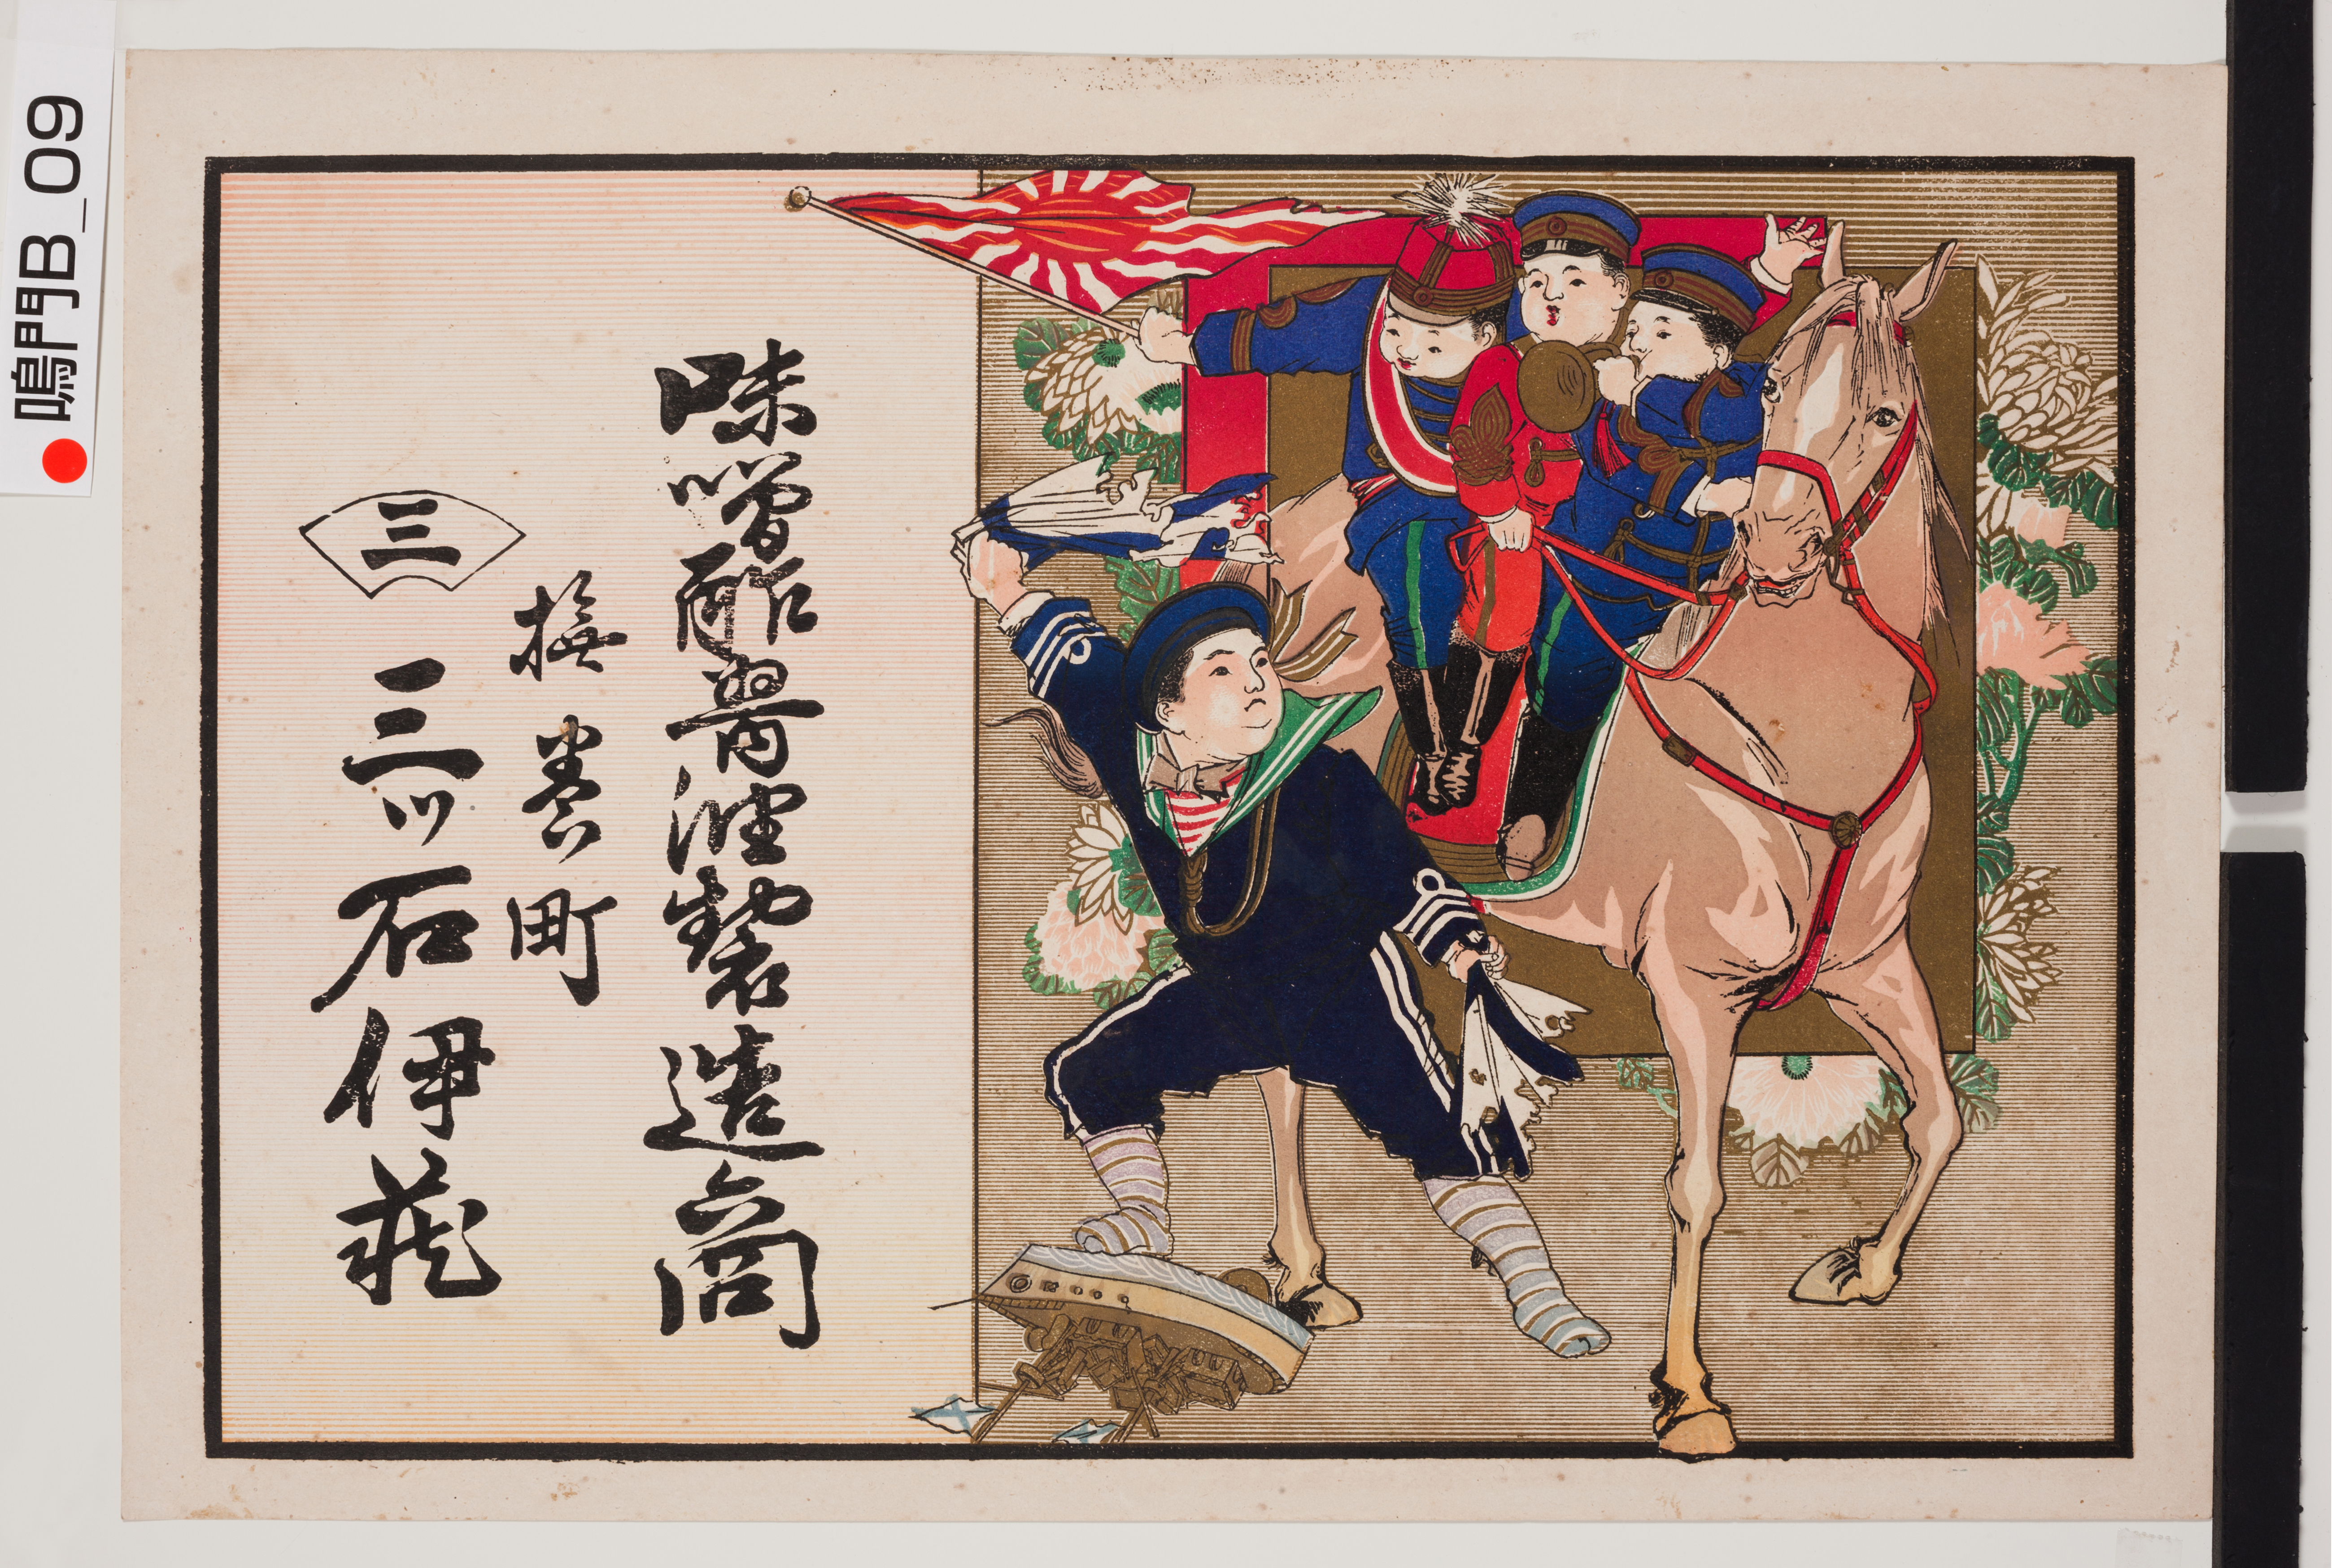 味噌酢醤油製造商
撫養町
三
三ツ石伊蔵
鳴門B_09